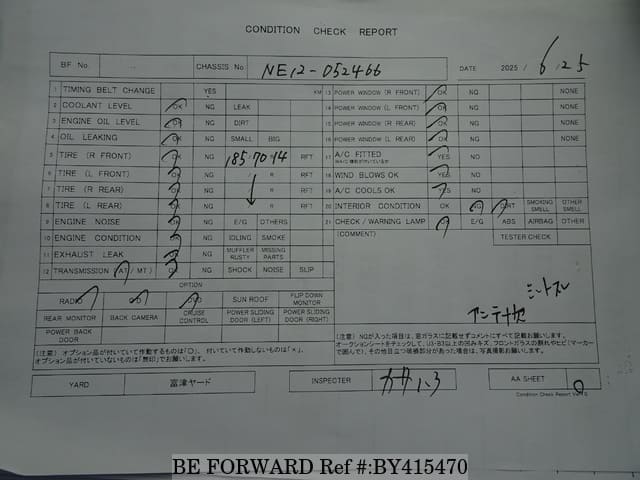 CONDITION CHECK REPORT
BF No CHASSIS No NE12-052466 DATE 2025 / 6 / 25
1 TIMING BELT CHANGE YES KM
2 COOLANT LEVEL OK NG LEAK
3 ENGINE OIL LEVEL OK NG DIRT
4 OIL LEAKING OK NG SMALL BIG
5 TIRE (R FRONT) OK NG 185-70-14 RFT
6 TIRE (L FRONT) OK NG / R RFT
7 TIRE (R REAR) OK NG / R RFT
8 TIRE (L REAR) OK NG R RFT
9 ENGINE NOISE OK NG E/G OTHERS
10 ENGINE CONDITION OK NG IDLING SMOKE
11 EXHAUST LEAK OK NG MUFFLER RUSTY MISSING PARTS
12 TRANSMISSION (AT / MT) OK NG SHOCK NOISE SLIP
13 POWER WINDOW (R FRONT) OK NG NONE
14 POWER WINDOW (L FRONT) OK NG NONE
15 POWER WINDOW (R REAR) OK NG NONE
16 POWER WINDOW (L REAR) OK NG NONE
17 A/C FITTED YES NO
18 WIND BLOWS OK YES NO
19 A/C COOLS OK YES NO
20 INTERIOR CONDITION OK NG DIRT SMOKING SMELL OTHER SMELL
21 CHECK / WARNING LAMP E/G ABS AIRBAG OTHER
(COMMENT) TESTER CHECK
OPTION
RADIO CD DVD SUN ROOF FLIP DOWN MONITOR
REAR MONITOR BACK CAMERA CRUISE CONTROL POWER SLIDING DOOR (LEFT) POWER SLIDING DOOR (RIGHT)
POWER BACK DOOR
アンテナ欠
(注意) オプション品が付いていて作動するものは「○」、付いていて作動しないものは「×」、
オプション品が付いていないものは「無印」でお願いします。
(注意) NGが入った項目は、窓ガラスに記載せずコメントにすべて記載お願いします。
オークションシートをチェックして、U3・B3以上の凹みキズ、フロントガラスの割れやヒビ(マーカー
で囲んで)、その他目立つ破損部分があった場合は、写真撮影お願いします。
YARD 富津ヤード INSPECTER AA SHEET
Condition Check Report
BE FORWARD Ref #:BY415470